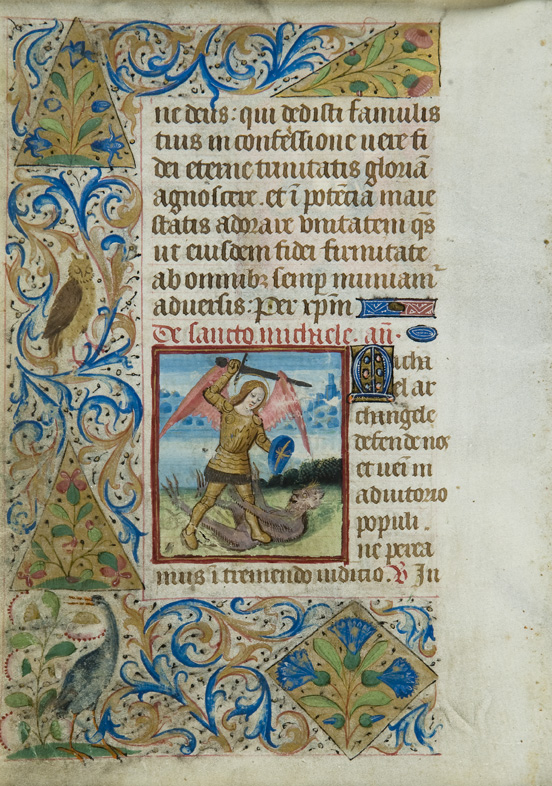 ne deus: qui dedisti famulis
tuis in confessione uere fi
dei eterne trinitatis gloriā
agnoscere. et ī potēcia maie
statis adorare vnitatem q̄s
ut eiusdem fidei firmitate
ab omnibꝫ semp muniam̄
aduersis: Per xpm̄
De sancto michaele. añ.
Micha
el ar
changele
defende nos
et ueni in
adiutorio
populi.
ne perea
mus ī tremendo iudicio. ℣ In